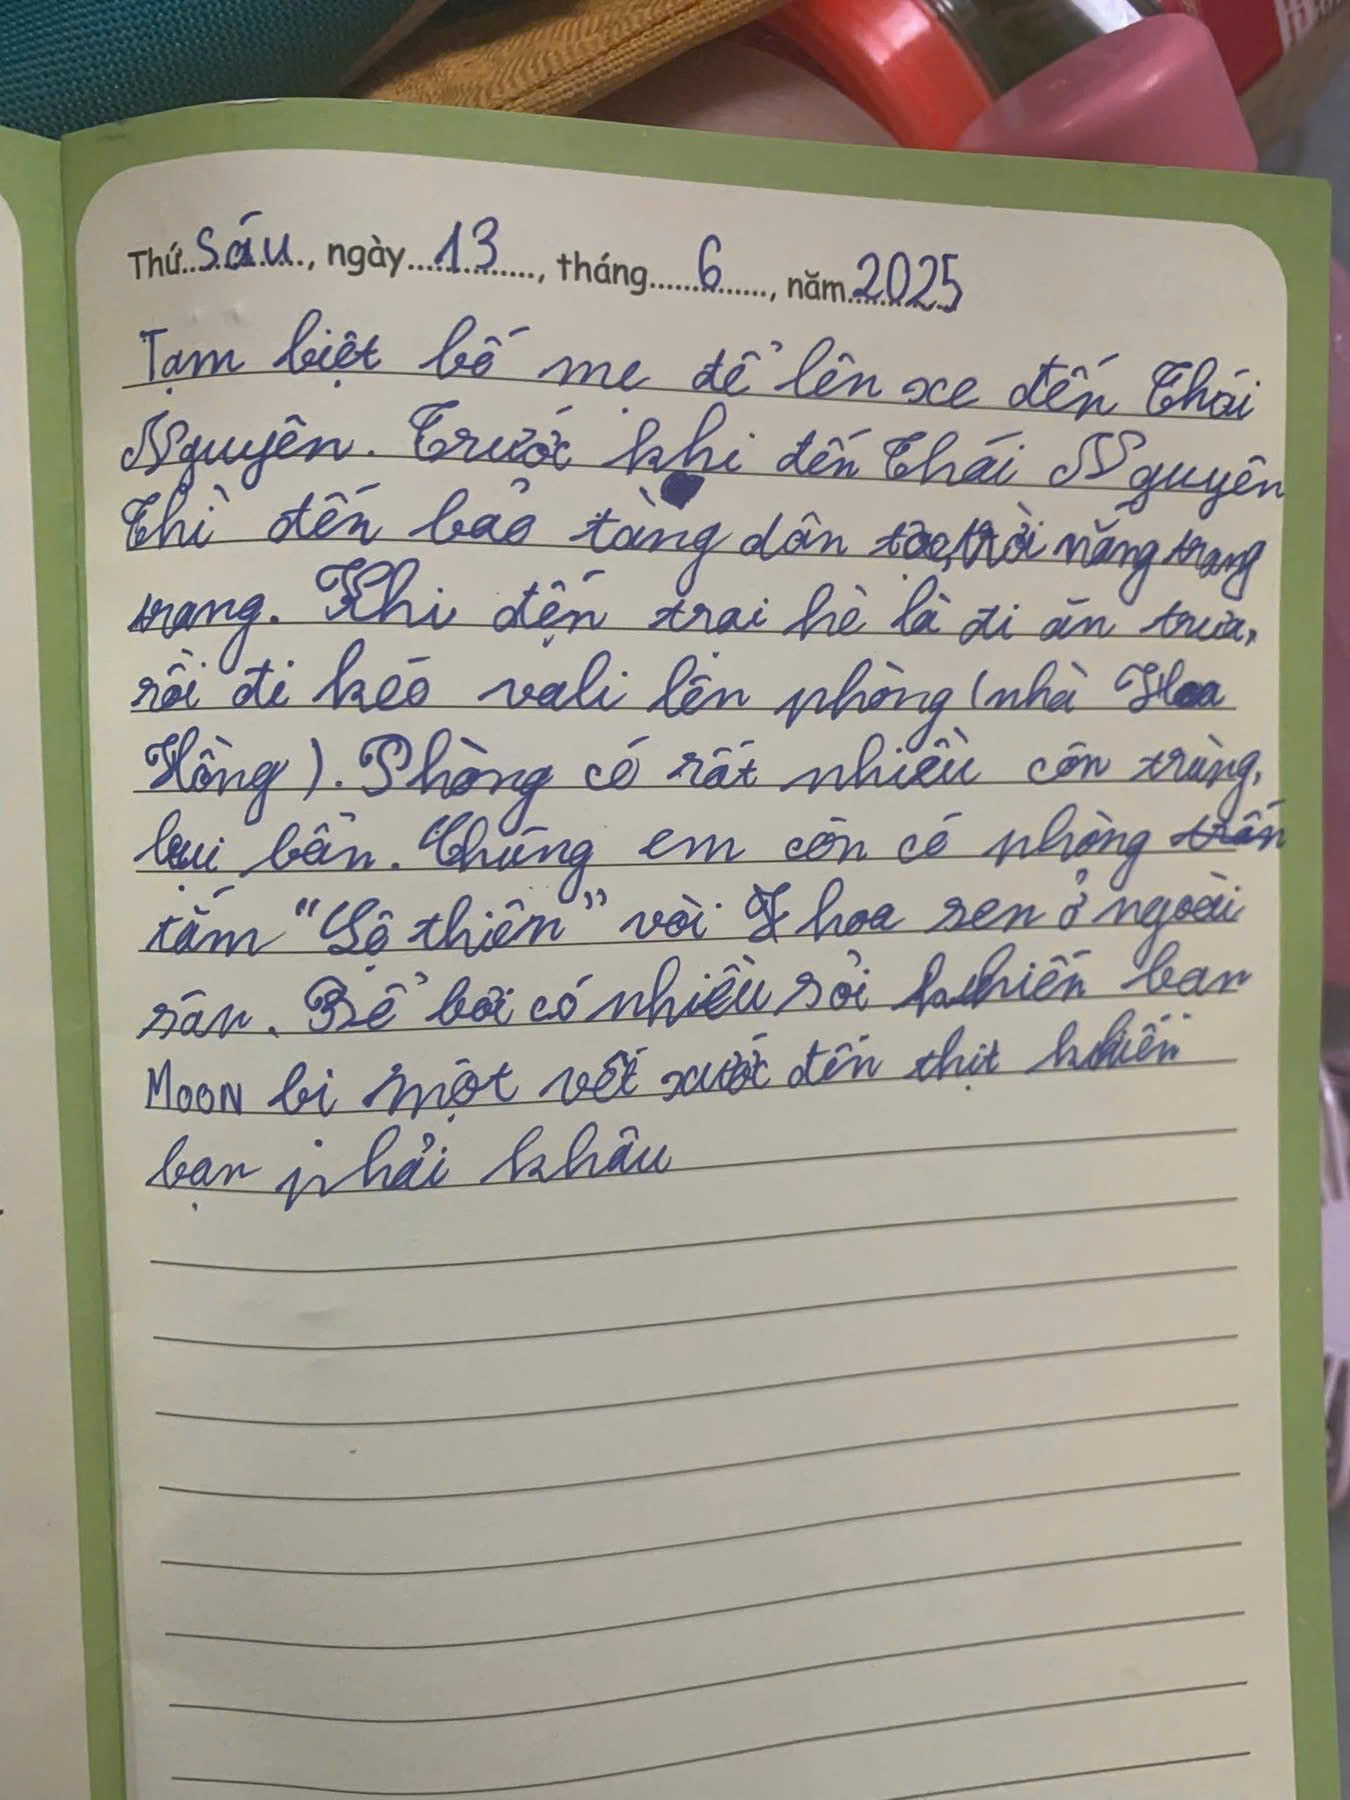 Thứ Sáu, ngày 13, tháng 6, năm 2025
Tạm biệt bố mẹ để lên xe đến Thái
Nguyên. Trước khi đến Thái Nguyên
Thì đến bảo tàng dân tộc, trời nắng trang
trang. Khi đến trại hè là đi ăn trưa,
rồi đi kéo vali lên phòng (nhà Hoa
Hồng). Phòng có rất nhiều côn trùng,
bụi bẩn. Chúng em còn có phòng
tắm "Lộ thiên" với hoa sen ở ngoài
sân. Bể bơi có nhiều sỏi khiến bạn
MOON bị một vết xước đến thịt khiến
bạn phải khâu